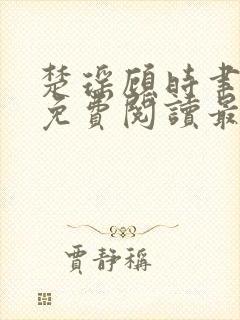 楚瑶顾时書
免費閱讀最
賈靜稱